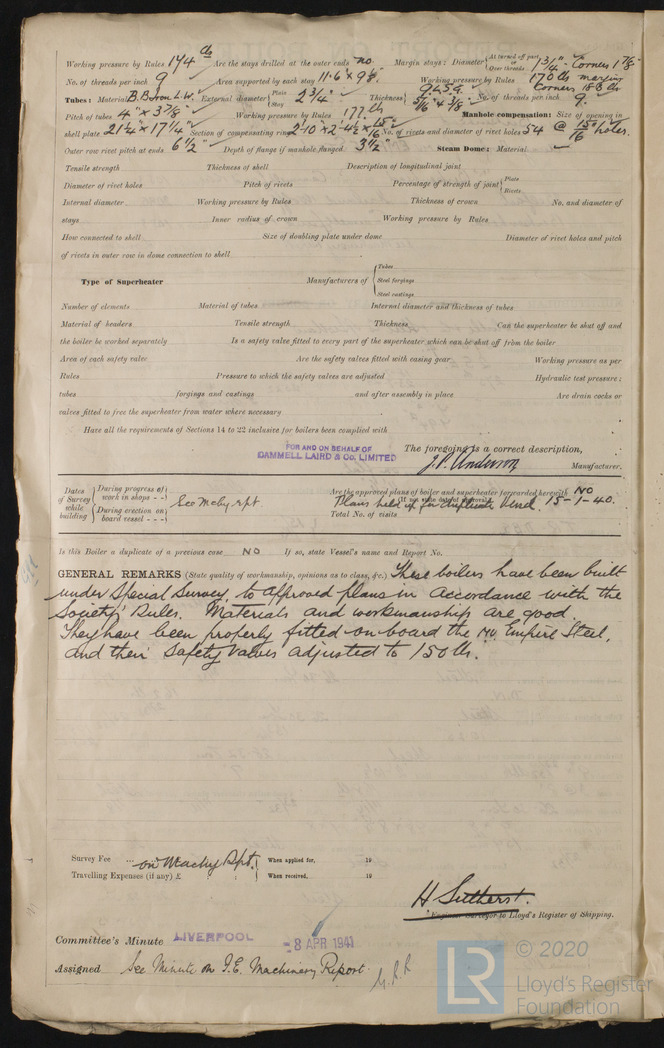 Working pressure by Rules 174 lb Are the stays drilled at the outer ends no. Margin stays: Diameter { At turned off part, or Over threads 1 3/4" - Corners 1 7/8"
No. of threads per inch 9 Area supported by each stay 11·6" × 9 8". Working pressure by Rules 170 lb margin Corners 188 lb
Tubes: Material B.B Iron L.W. External diameter { Plain Stay 2 1/4" Thickness { 9 & 5 G. 5/16" & 3/8" No. of threads per inch 9.
Pitch of tubes 4" × 3 7/8" Working pressure by Rules 177. lb Manhole compensation: Size of opening in
shell plate 21 1/4" × 17 1/4" Section of compensating ring 2'-10" × 2'-4 1/2" × 15/16" No. of rivets and diameter of rivet holes 54 @ 15/16" holes.
Outer row rivet pitch at ends 6 1/2" Depth of flange if manhole flanged 3 1/2" Steam Dome: Material
Tensile strength Thickness of shell Description of longitudinal joint
Diameter of rivet holes Pitch of rivets Percentage of strength of joint { Plate Rivets
Internal diameter Working pressure by Rules Thickness of crown No. and diameter of
stays Inner radius of crown Working pressure by Rules
How connected to shell Size of doubling plate under dome Diameter of rivet holes and pitch
of rivets in outer row in dome connection to shell
Type of Superheater Manufacturers of { Tubes Steel forgings Steel castings
Number of elements Material of tubes Internal diameter and thickness of tubes
Material of headers Tensile strength Thickness Can the superheater be shut off and
the boiler be worked separately Is a safety valve fitted to every part of the superheater which can be shut off from the boiler
Area of each safety valve Are the safety valves fitted with easing gear Working pressure as per
Rules Pressure to which the safety valves are adjusted Hydraulic test pressure:
tubes forgings and castings and after assembly in place Are drain cocks or
valves fitted to free the superheater from water where necessary
Have all the requirements of Sections 14 to 22 inclusive for boilers been complied with
FOR AND ON BEHALF OF The foregoing is a correct description,
CAMMELL LAIRD & Co. LIMITED J. P. Anderson Manufacturer.
Dates of Survey while building { During progress of work in shops - - } { During erection on board vessel - - - } See Mchy. rpt Are the approved plans of boiler and superheater forwarded herewith NO
(If not state date of approval.) Plans held up for duplicate Vessel. 15-1-40.
Total No. of visits
Is this Boiler a duplicate of a previous case NO If so, state Vessel's name and Report No.
GENERAL REMARKS (State quality of workmanship, opinions as to class, &c.) These boilers have been built
under Special Survey, to approved plans in accordance with the
Society's Rules. Materials and workmanship are good.
They have been properly fitted on board the MV. Empire Steel,
and their Safety Valves adjusted to 150 lb.
Survey Fee ... on Machy Rpt. When applied for, 19
Travelling Expenses (if any) £ : : When received, 19
H Sutherst.
Engineer Surveyor to Lloyd's Register of Shipping.
Committee's Minute LIVERPOOL - 8 APR 1941
Assigned See Minute on F.E. Machinery Report.
LR © 2020
Lloyd's Register
Foundation